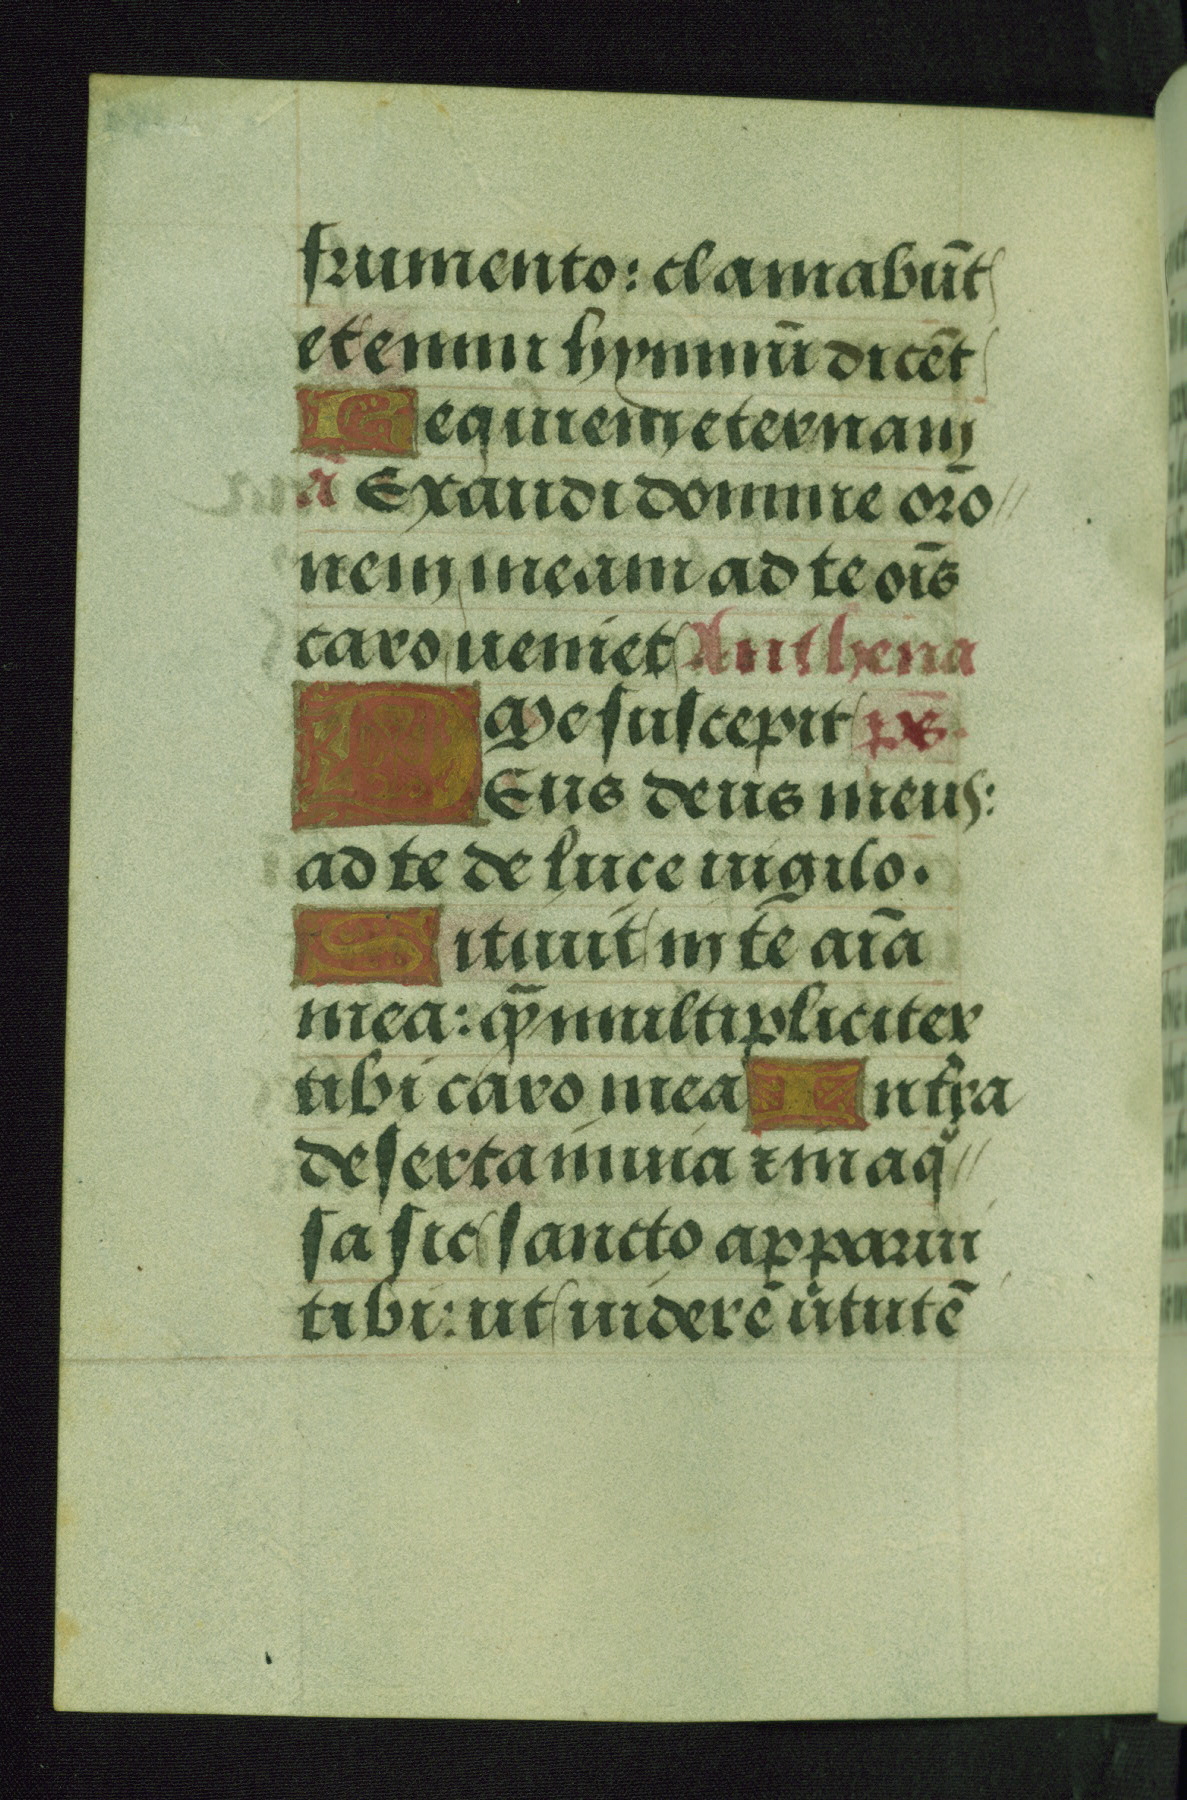 frumento: clamabūt
etenim hymnū dicēt
Requiem eternam
ā Exaudi domine orō
nem meam ad te oīs
caro ueniet Anthēna
Me suscepit ps̄.
DEus deus meus:
ad te de luce uigilo.
Sitiuit in te aīa
mea: q̄ multipliciter
tibi caro mea In t̄ra
deserta inuia ⁊ in aq
sa sic sancto apparui
tibi: ut uiderē u̇tutē